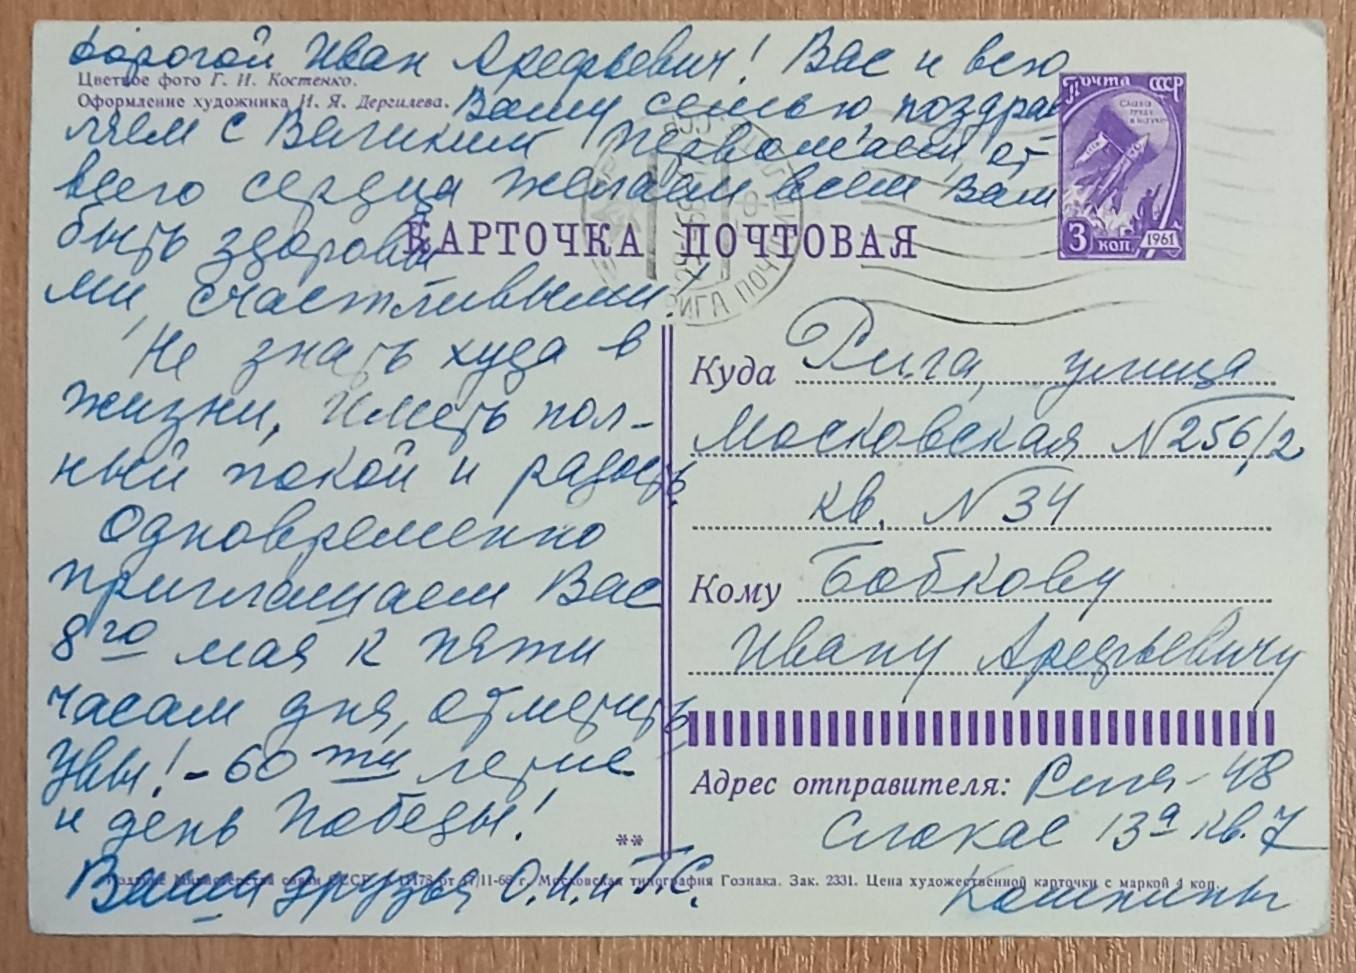 Дорогой Иван Арефьевич! Вас и всю
Цветное фото Г. И. Костенко.
Оформление художника И. Я. Дергилева.
Вашу семью поздрав
ляем с Великим Первомаем от
всего сердца желаем всем Вам
быть здоровы
ми, счастливыми!
Не знать худа в
жизни, Иметь пол-
ный покой и радость
Одновременно
приглашаем Вас
8го мая к пяти
часам дня, отметить
Увы! - 60ти летие
и день Победы!
Ваши друзья О.И. и Т.С.
КАРТОЧКА ПОЧТОВАЯ
Почта СССР
СЛАВА
ТРУДУ
И НАУКЕ
3 коп. 1961
РИГА ПОЧ
Куда Рига, улица
Московская № 256/2
кв. № 34
Кому Бобкову
Ивану Арефьевичу
Адрес отправителя: Рига-48
Слокас 13а кв. 7
Кашкины
**
Издание Министерства связи СССР. 17/II-66 г. Московская типография Гознака. Зак. 2331. Цена художественной карточки с маркой 4 коп.